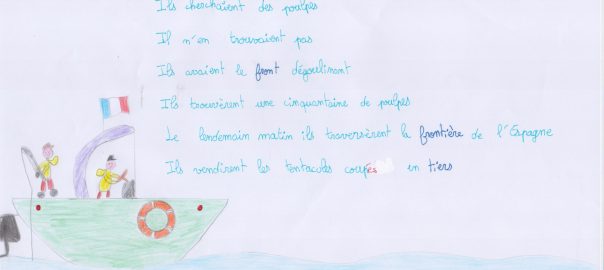 Ils cherchaient des poulpes
Il n'en trouvaient pas
Ils avaient le front dégoulinant
Ils trouvèrent une cinquantaine de poulpes
Le lendemain matin ils traversèrent la frontière de l'Espagne
Ils vendirent les tentacules coupés en tiers